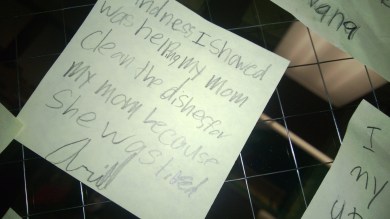 kindness I showed
was helping my mom
clean the dishes for
my mom because
she was tired
nana
I
my